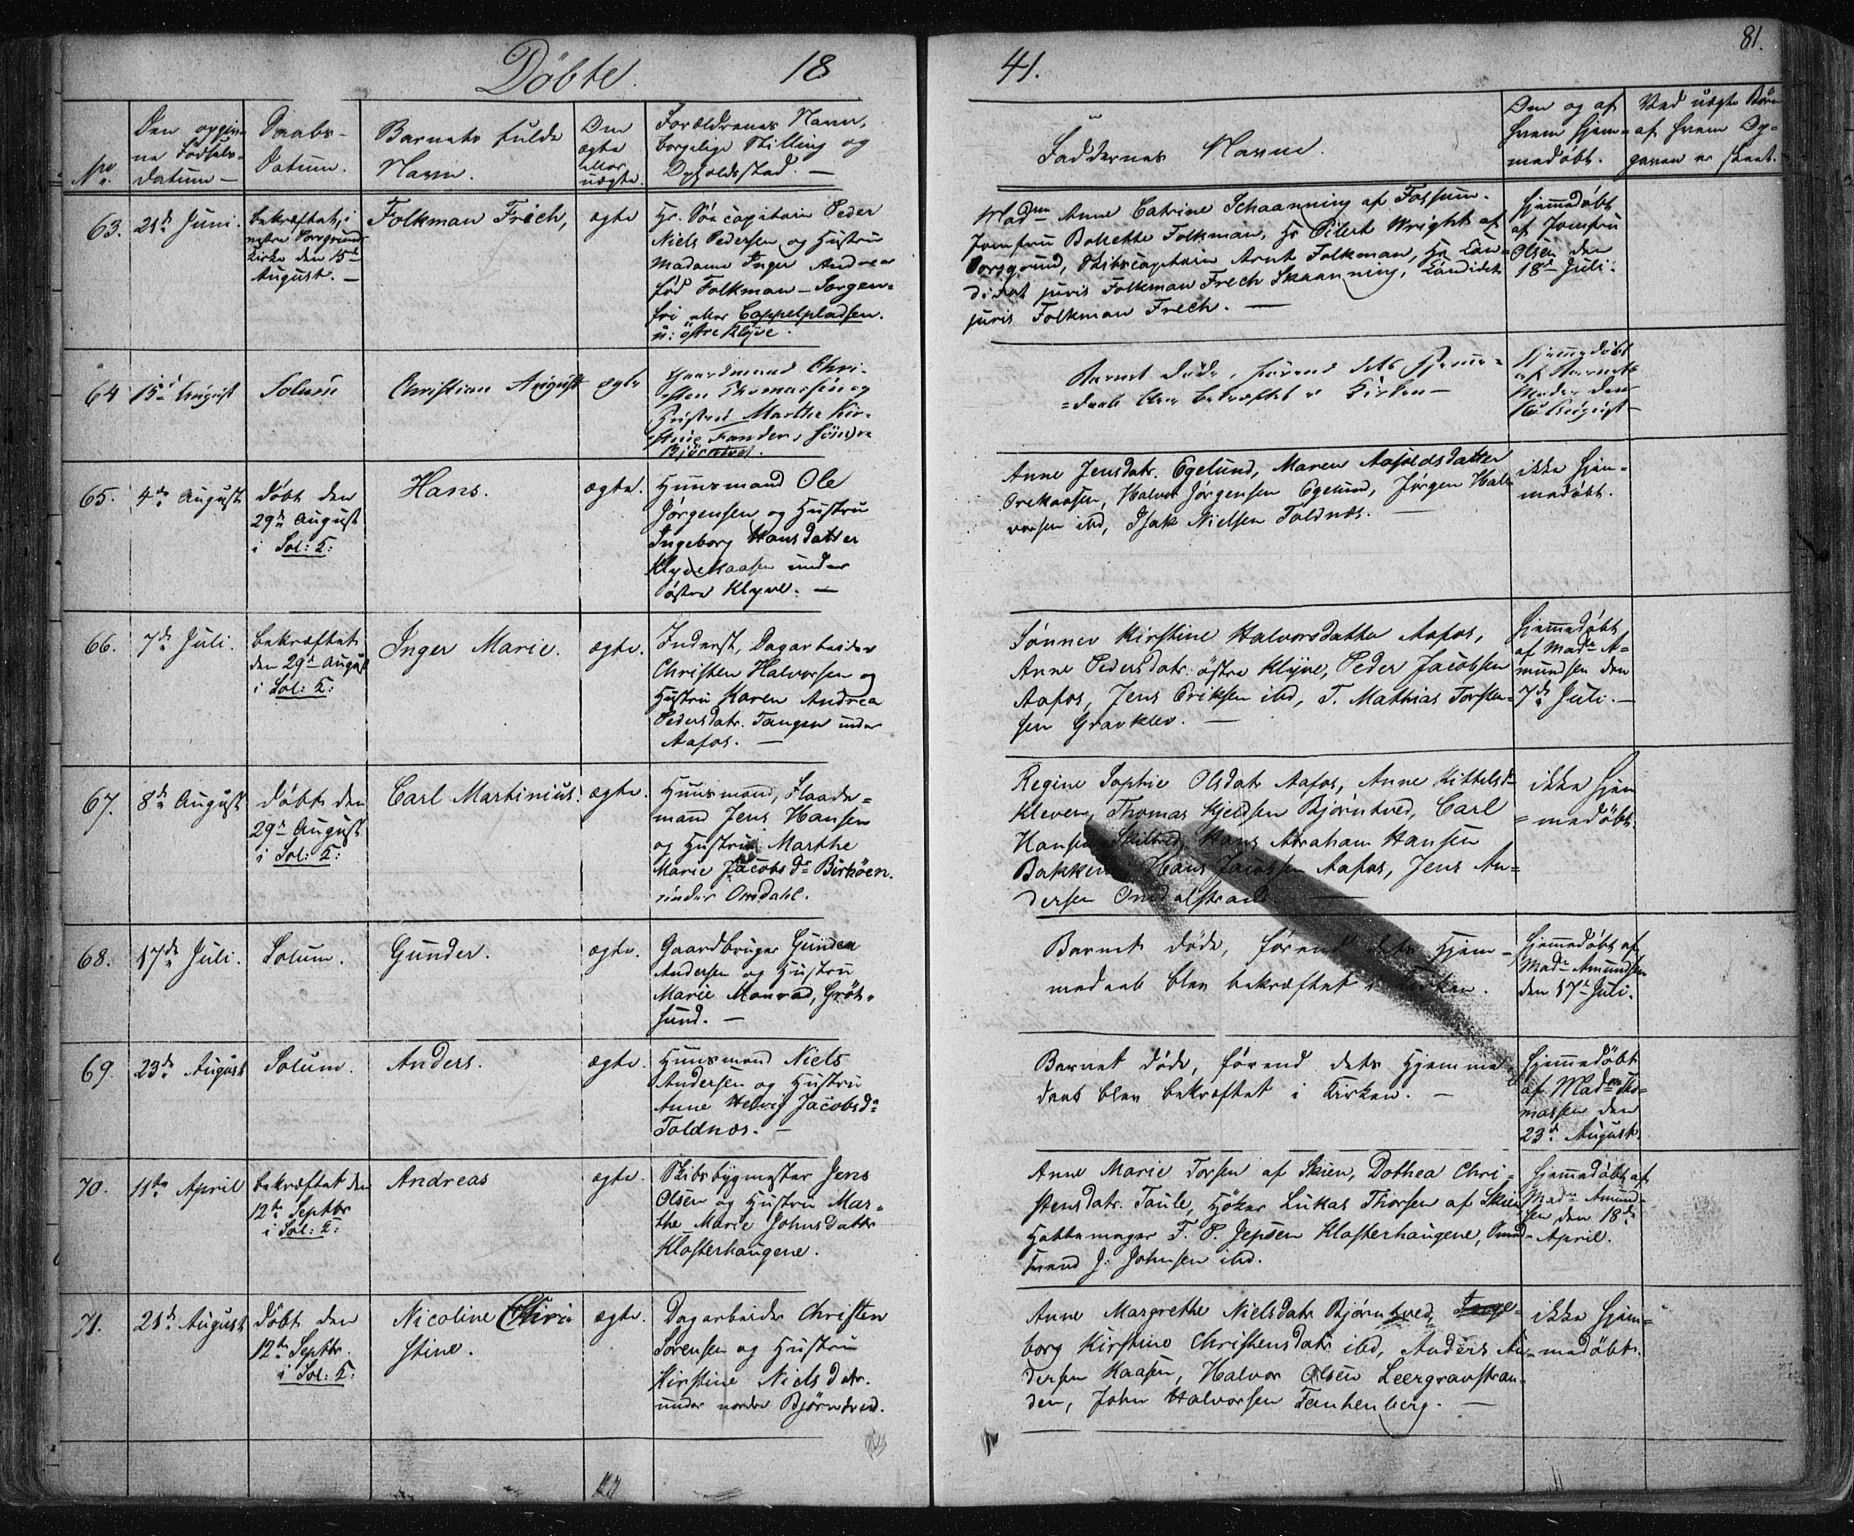 Døbte. 18 41. 81.
No.
Den opgiv-
ne Fødsels-
datum —
Daabs-
Datum.
Barnets fulde
Navn.
Om
ægte
eller
uægte.
Forældrenes Navn,
borgelige Stilling og
Opholdssted. —
Faddernes Navne.
Om og af
hvem hjem-
medøbt.
Ved uægte Børn
af hvem Op-
gaven er skeet.
63. 21de Juni.
bekræftet i
Porsgrunds
Kirke den 15de
August. —
Folkman Frich, ægte
Hr. Søecapitain Peder
Niels Pedersen og Hustru
Madame Inger Andrea
fød Folkman — Sorgen-
fri eller Cappelpladsen.
u: östre Klyve.
Madm Anne Catrine Schaanning af Fossum.
Jomfru Bollette Folkman, Hr Eilert Wright af
Porsgrund, Skibscapitain Arnt Folkman, Hr Can-
didat juris Folkman Frech Skaanning, Candidat
juris Folkman Frech. —
hjemmedøbt
af Jomfru
Olsen den
18de Juli.
64 15de August Solum Christian August ægte
Gaardmand Chri-
sten Thomassen og
Hustru Marthe Kir-
stine
Björntvet.
Barnet døde, førend dets Hjemme-
daab blev bekræftet i Kirken —
hjemmedøbt
af Barnets
Moder den
August —
65. 4de August
døbt den
29de August
i Sol: K:
Hans. ægte.
Huusmand Ole
Jørgensen og Hustru
Ingeborg Hansdatter
Klyvekaasen under
østre Klyve. —
Anne Jensdatr. Egelund, Maren
Halvor Jørgensen Egelund, Jørgen Hal-
vorsen ibd, Isak Nielsen Toldnæs. —
ikke hjem-
medøbt.
66. 7de Juli.
bekræftet
den 29de August
i Sol: K:
Inger Marie. ægte.
Inderst, Dagarbeider
Christen Halvorsen og
Hustru Karen Andrea
Pedersdatr. Tangen under
Aafos. —
Kirstine Halvorsdatter Aafos,
Anne Pedersdatr. östre Klyve, Peder Jacobsen
Aafos, Jens Eriksen ibd, T. Mathias Torste-
sen Gravklev. —
hjemmedøbt
af Madm A-
mundsen den
7de Juli. —
67. 8de August
døbt den
29de August
i Sol: K:
Carl Martinius. ægte.
Huusmand, Flaade-
mand Jens Hansen
og Hustru Marthe
Marie Jacobsdr Birköen
under Omdahl.
Regine Sophie Olsdatr Aafos, Anne Kittelsdr
Kleven, Thomas Kjeldsen Bjørntved, Carl
Hansen Skilbred, Hans Abraham Hansen
Bakken, Hans Jacobsen Aafos, Jens An-
dersen Omdalstrand. —
ikke hjem
= medøbt.
68. 17de Juli. Solum. Gunder. ægte.
Gaardbruger Gunder
Andersen og Hustru
Marie Monrad, Gröt-
sund. —
Barnet døde, førend dets Hjem-
medaab blev bekræftet i Kirken.
hjemmedøbt af
Madm Amundsen
den 17de Juli.
69. 23de August Solum. Anders. ægte.
Huusmand Niels
Andersen og Hustru
Anne Helvig Jacobsdr
Toldnæs. —
Barnet døde, førend dets Hjemme
daab blev bekræftet i Kirken. —
hjemmedøbt
af Madm Tho-
massen den
23de August.
70. 11te April
bekræftet den
12te Septbr
i Sol: K:
Andreas ægte.
Skibsbygmester Jens
Olsen og Hustru Mar-
the Marie Johnsdatter
Klosterhaugene.
Anne Marie Torsen af Skien, Dothea Chri-
stensdatr. Taule, Høker Lukas Thorsen af Skien
Hattemager T. P. Jepsen Klosterhaugene,
J. Johnsen ibd.
hjemmedøbt af
Madm Amund-
sen den 18de
April.
71. 21de August
døbt den
12te Septbr.
i Sol: K:
Nicoline Chri-
stine. ægte.
Dagarbeider Christen
Sørensen og Hustru
Kirstine Nielsdatr.
under nordre Bjørntved.
Anne Margrethe Nielsdatr Bjørntved, Inge-
borg Kirstine Christensdatr ibd, Anders An-
dersen Kaasen, Halvor Olsen Leergravstran-
den, John Halvorsen Frankenberg. —
ikke hjem-
medøbt.